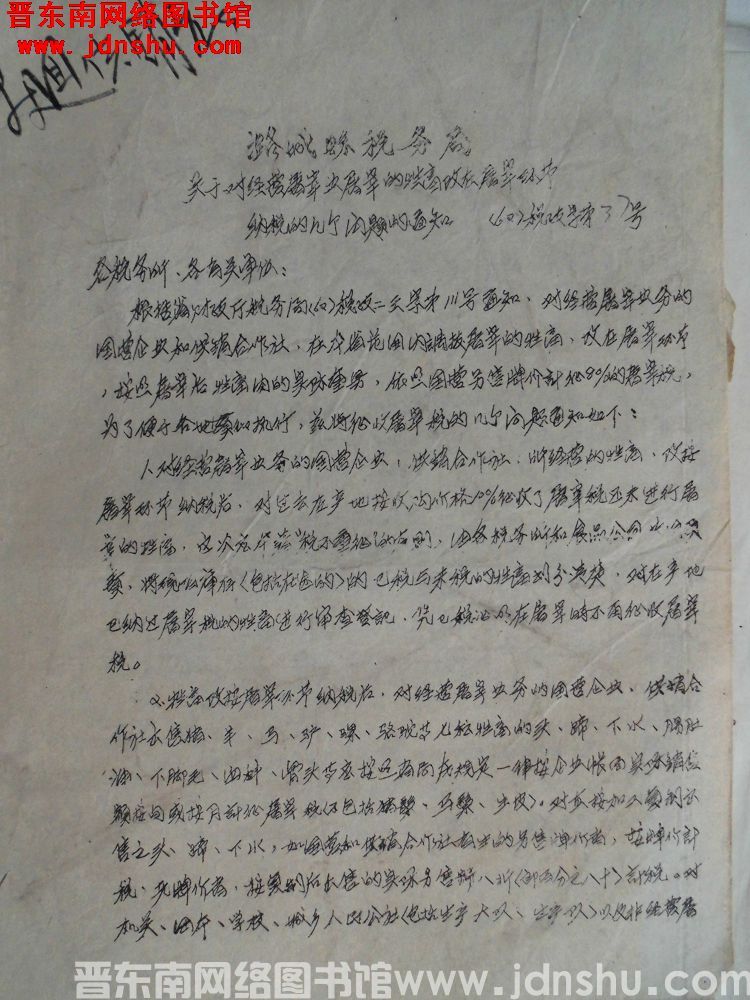 晋东南网络图书馆
www.jdnshu.com
潞城县税务局
关于对经营屠宰业屠宰的牲畜改在屠宰环节
纳税的几个问题的通知 (60)税政字第37号
各税务所、各有关单位:
根据省财政厅税务局(60)税政二字第111号通知、对经营屠宰业务的
国营企业和供销合作社、在本省范围内调拨屠宰的牲畜、改在屠宰环节
,按照屠宰后牲畜肉的实际重量,依照国营另售牌价计征9%的屠宰税,
为了便于各地执行,兹将征收屠宰税的几个问题通知如下:
1、对经营屠宰业务的国营企业、供销合作社、所经营的牲畜、改按
屠宰环节纳税后、对过去在产地按收购价格10%征收了屠宰税还未进行屠
宰的牲畜,这次应本着税不重征的原则,由各税务所和食品公司
,将现在库存(包括在途的)的已税与未税的牲畜划分清楚,对在产地
已纳过屠宰税的牲畜进行审查登记,凭已税证明在屠宰时不再征收屠宰
税。
2、牲畜改按屠宰环节纳税后,对经营屠宰业务的国营企业、供销合
作社出售猪、羊、马、驴、骡、骆驼等已税牲畜的头、蹄、下水、肠肚
油、下脚毛、血、骨头等应按一律按企业帐面实际销售
额按旬或按月计征屠宰税(不包括猪鬃、马鬃、生皮)。对直接加工复制出
售之头、蹄、下水,如国营和供销合作社有生的另售牌价者,按牌价计
税,无牌价者,按复制后出售的实际另售价八折(即百分之八十)计税。对
机关、团体、学校、城乡人民公社(包括生产大队、生产队)以及非经营屠
晋东南网络图书馆www.jdnshu.com